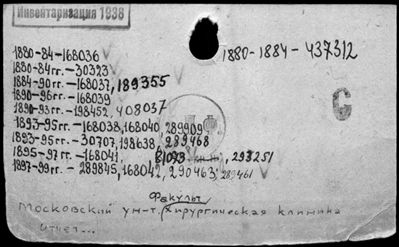 Инвентаризация 1938
1880-84-168036
1880-1884-437312
1880-84гг.-30323
1884-90гг.-168037, 189355
1890-96гг.-168039
1890-93гг.-198452, 408037
1893-95гг.-168038, 168040, 289909
1893-95гг.-30707, 198638, 289468
1895-97гг.-168041, 293251
1897-99гг.-289845, 168042, 290463, 289461
Факульт
Московский ун-т. Хирургическая клиника
Отчет...